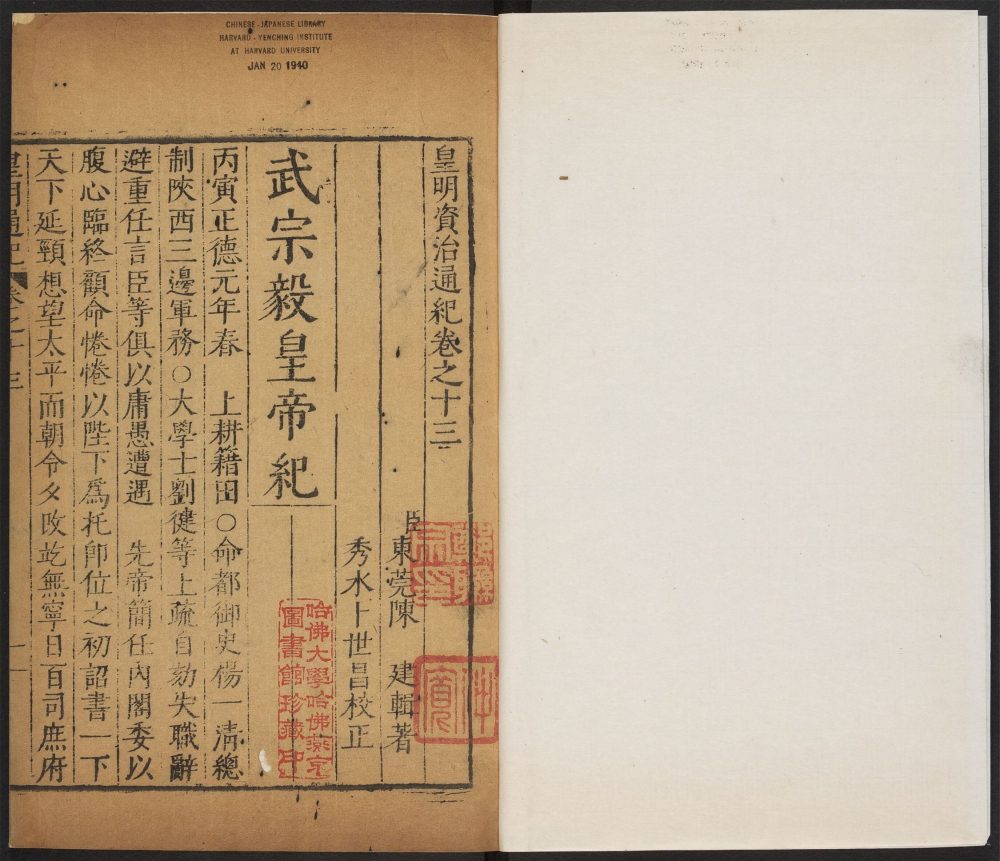 CHINESE-JAPANESE LIBRARY
HARVARD-YENCHING INSTITUTE
AT HARVARD UNIVERSITY
JAN 20 1940
皇明資治通紀卷之十三
臣東莞陳 建輯著
秀水卜世昌校正
武宗毅皇帝紀
丙寅正德元年春 上耕籍田○命都御史楊一清總
制陝西三邊軍務○大學士劉健等上疏自劾失職辭
避重任言臣等俱以庸愚遭遇 先帝簡任內閣委以
腹心臨終顧命惓惓以陛下爲托卽位之初詔書一下
天下延頸想望太平而朝令夕改訖無寧日百司庶府
皇明通紀 卷之十三
哈佛大學哈佛燕京
圖書館珍藏印